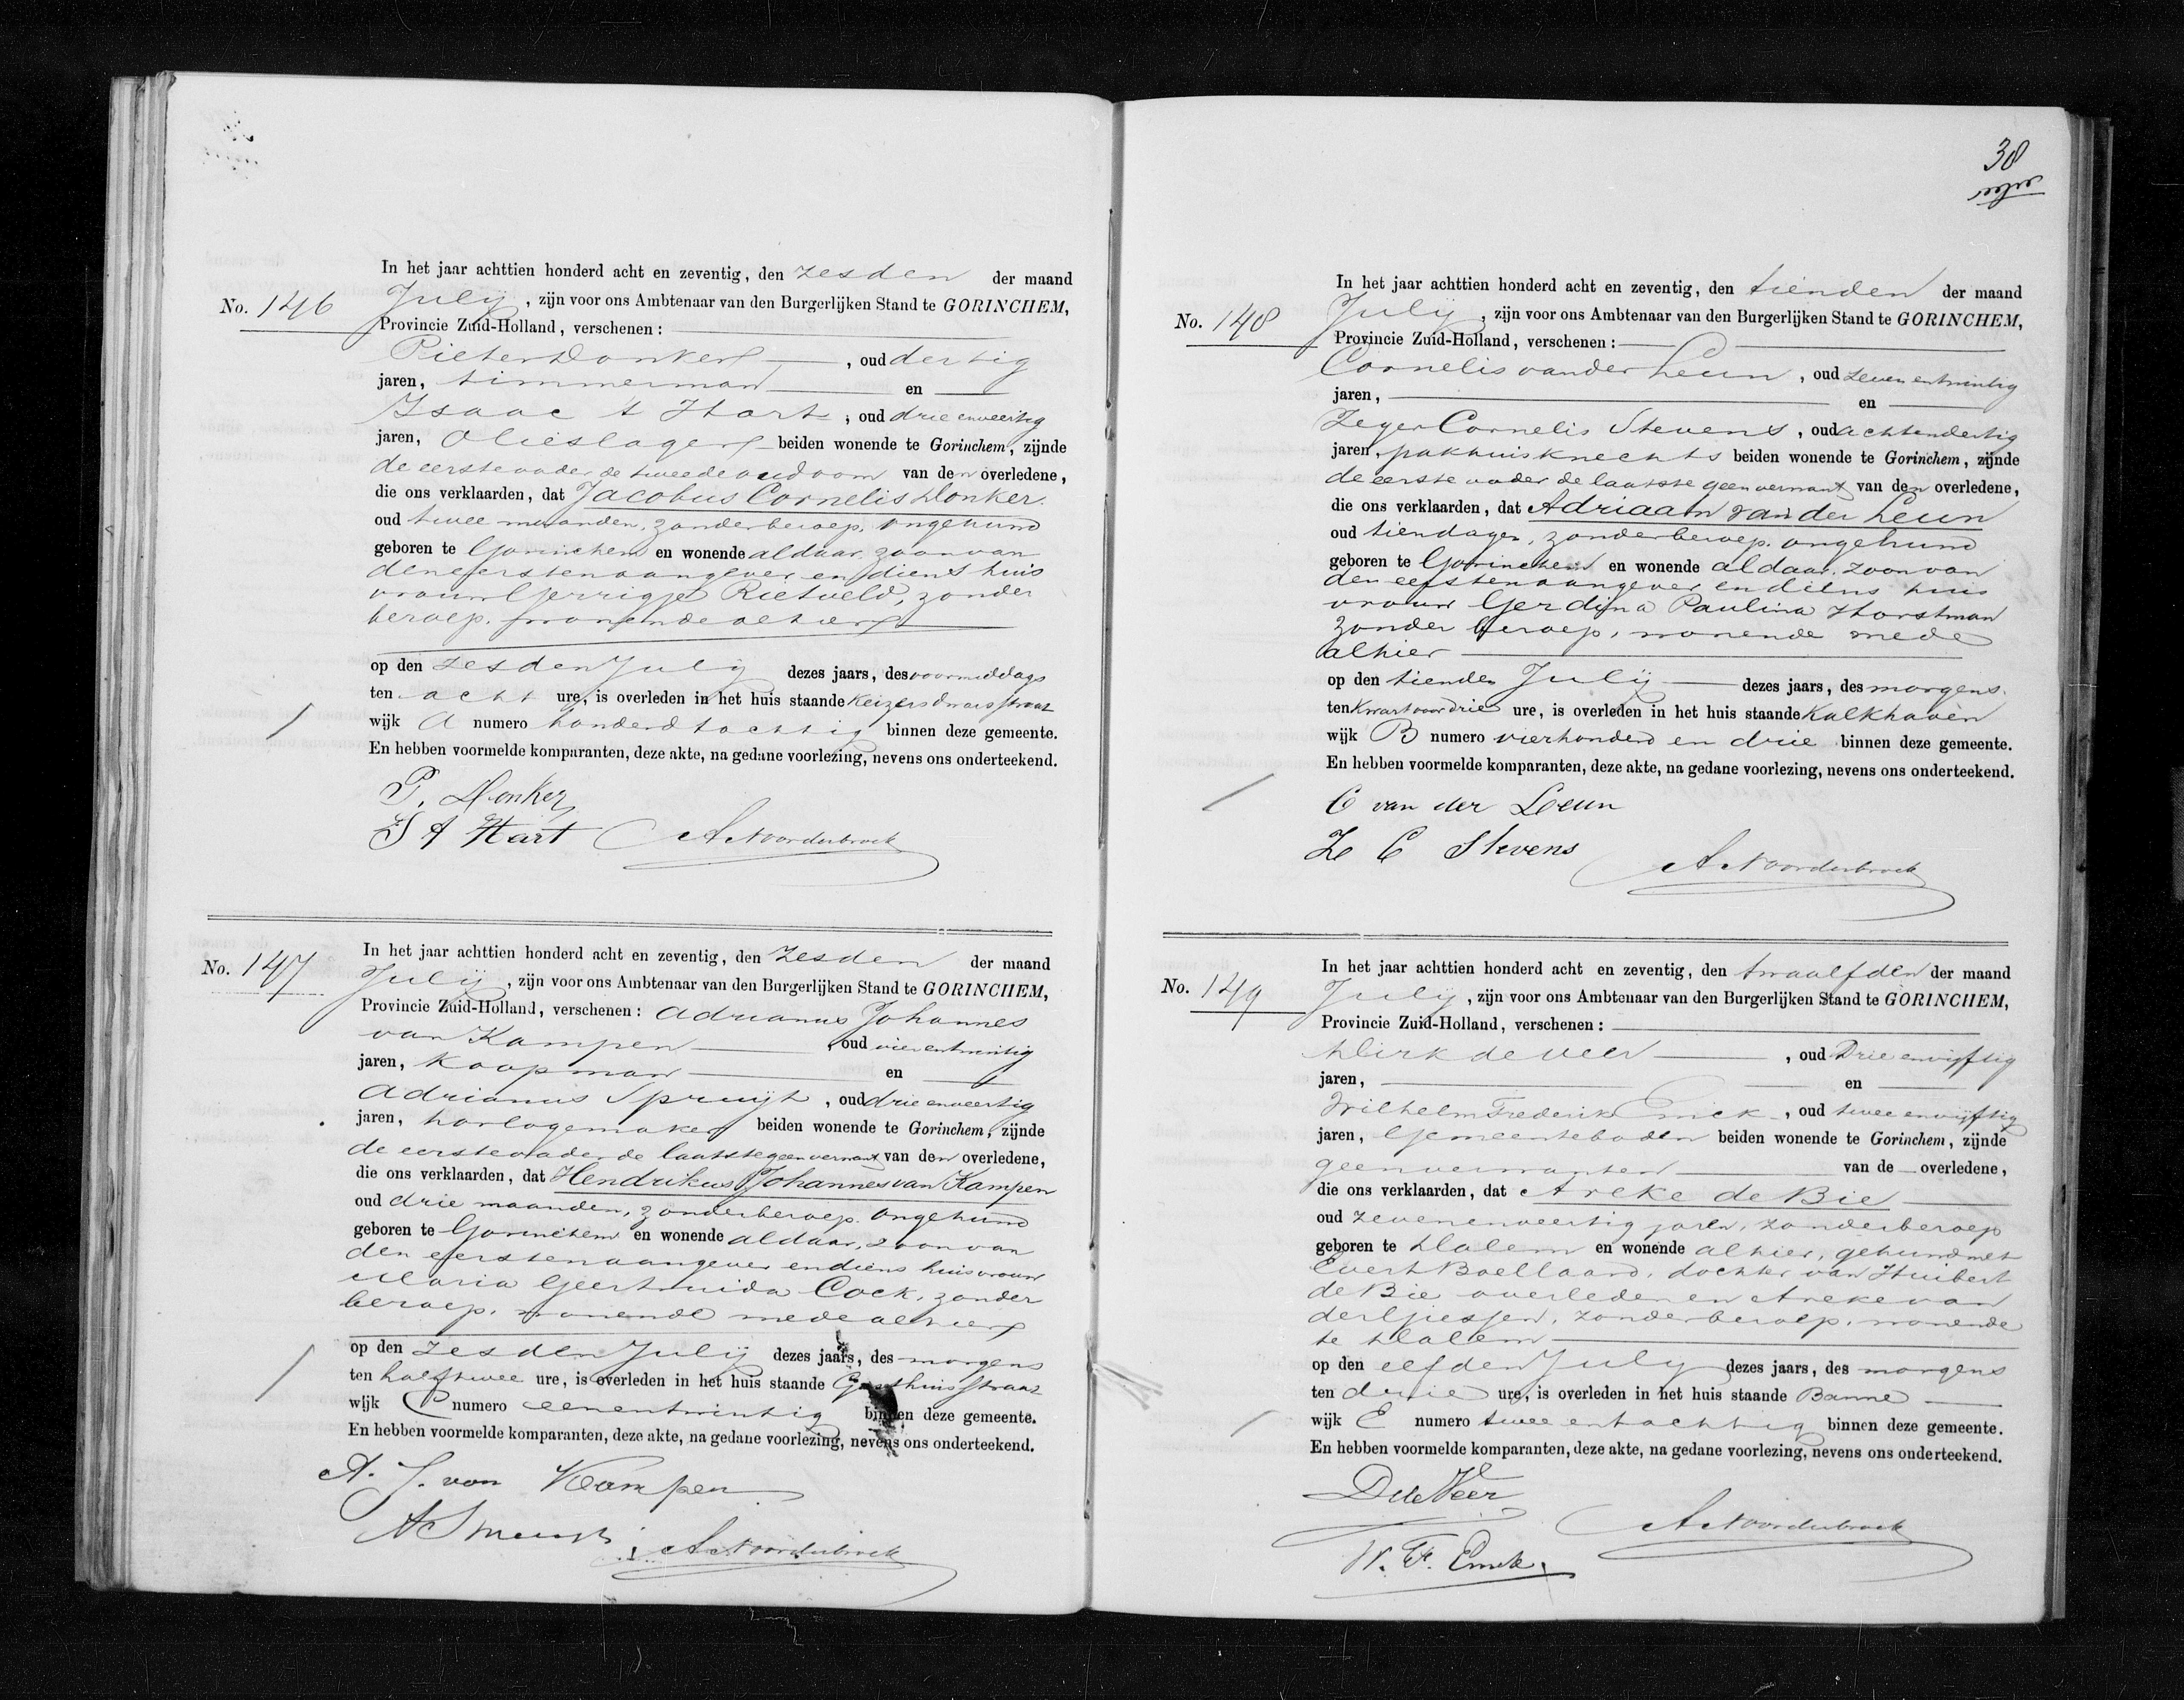 In het jaar achttien honderd acht en zeventig, den zesden der maand
No. 146 July, zijn voor ons Ambtenaar van den Burgerlijken Stand te GORINCHEM,
Provincie Zuid-Holland, verschenen:
Pieter Donker, oud dertig
jaren, timmerman en
Isaac 't Hart, oud drie en veertig
jaren, Olieslager beiden wonende te Gorinchem, zijnde
de eerste vader de tweede oudoom van den overledene,
die ons verklaarden, dat Jacobus Cornelis Donker.
oud twee maanden, zonder beroep, ongehuwd
geboren te Gorinchem en wonende aldaar, zoon van
den eersten aangever en diens huis
vrouw Gerrigje Rietveld, zonder
beroep, wonende alhier
op den zesden July dezes jaars, des voormiddags
ten acht ure, is overleden in het huis staande Keizersdwarsstraat
wijk A numero honderd tachtig binnen deze gemeente.
En hebben voormelde komparanten, deze akte, na gedane voorlezing, nevens ons onderteekend.
P. Donker
I t Hart A Noorderbroek
In het jaar achttien honderd acht en zeventig, den zesden der maand
No. 147 July, zijn voor ons Ambtenaar van den Burgerlijken Stand te GORINCHEM,
Provincie Zuid-Holland, verschenen: Adrianus Johannes
van Kampen, oud vier en twintig
jaren, Koopman en
Adrianus Spruijt, oud drie en veertig
jaren, horlogemaker beiden wonende te Gorinchem, zijnde
de eerste vader de laatste geen verwant van den overledene,
die ons verklaarden, dat Hendrikus Johannes van Kampen
oud drie maanden, zonder beroep. ongehuwd
geboren te Gorinchem en wonende aldaar, zoon van
den eersten aangever en diens huisvrouw
Maria Geertruida Cock, zonder
beroep, wonende mede alhier
op den zesden July dezes jaars, des morgens
ten half twee ure, is overleden in het huis staande Gasthuisstraat
wijk C numero eenentwintig binnen deze gemeente.
En hebben voormelde komparanten, deze akte, na gedane voorlezing, nevens ons onderteekend.
A. J. van Kampen
A Spruijt A Noorderbroek
38
In het jaar achttien honderd acht en zeventig, den tienden der maand
No. 148 July, zijn voor ons Ambtenaar van den Burgerlijken Stand te GORINCHEM,
Provincie Zuid-Holland, verschenen:
Cornelis van der Leun, oud zeven en twintig
jaren, en
Zeger Cornelis Stevens, oud achtendertig
jaren, pakhuisknechts beiden wonende te Gorinchem, zijnde
de eerste vader de laatste geen verwant van den overledene,
die ons verklaarden, dat Adriaan van der Leun
oud tien dagen, zonder beroep. ongehuwd
geboren te Gorinchem en wonende aldaar, zoon van
den eersten aangever en diens huis
vrouw Gerdina Paulina Horstman
zonder beroep, wonende mede
alhier
op den tienden July dezes jaars, des morgens
ten kwart voor drie ure, is overleden in het huis staande Kalkhaven
wijk B numero vierhonderd en drie binnen deze gemeente.
En hebben voormelde komparanten, deze akte, na gedane voorlezing, nevens ons onderteekend.
C van der Leun
Z C Stevens
A Noorderbroek
In het jaar achttien honderd acht en zeventig, den twaalfden der maand
No. 149 July, zijn voor ons Ambtenaar van den Burgerlijken Stand te GORINCHEM,
Provincie Zuid-Holland, verschenen:
Dirk de Veer, oud Drie en vijftig
jaren, en
Wilhelm Frederik Emck, oud twee en vijftig
jaren, Gemeenteboden beiden wonende te Gorinchem, zijnde
geen verwanten van de overledene,
die ons verklaarden, dat Areke de Bie
oud zevenenveertig jaren, zonder beroep
geboren te Dalem en wonende alhier, gehuwd met
Evert Boellaard, dochter van Huibert
de Bie overleden en Areke van
der Giessen, zonder beroep, wonende
te Dalem
op den elfden July dezes jaars, des morgens
ten drie ure, is overleden in het huis staande Banne
wijk E numero twee en tachtig binnen deze gemeente.
En hebben voormelde komparanten, deze akte, na gedane voorlezing, nevens ons onderteekend.
D de Veer
A Noorderbroek
W. F. Emck